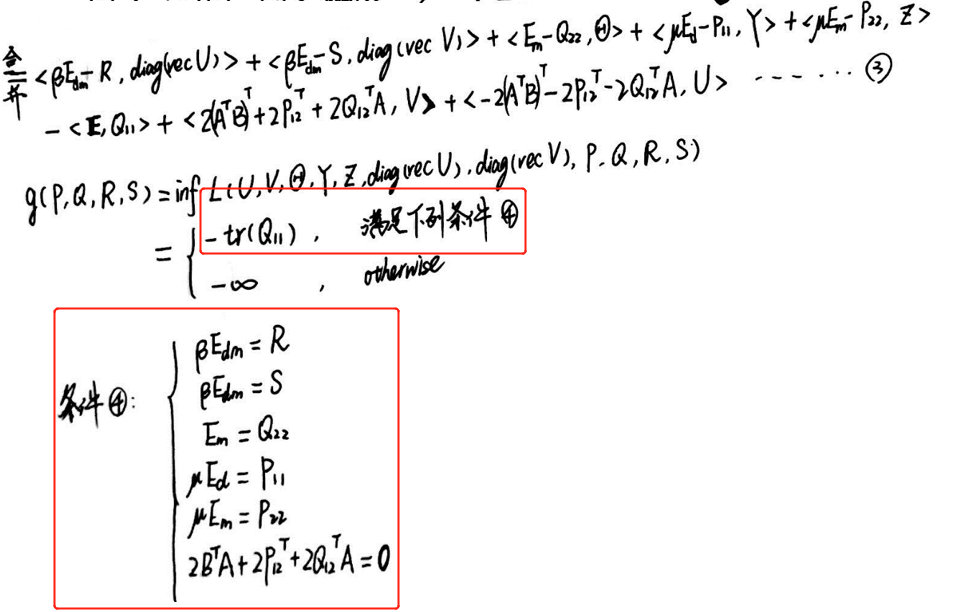 合并 <βE_dm - R, diag(vec U)> + <βE_dm - S, diag(vec V)> + <E_m - Q₂₂, Θ> + <μE_d - P₁₁, Y> + <μE_m - P₂₂, Z>
- <E, Q₁₁> + <2(AᵀB)ᵀ + 2P₁₂ᵀ + 2Q₁₂ᵀA, V> + <-2(AᵀB)ᵀ - 2P₁₂ᵀ - 2Q₁₂ᵀA, U> ------ ③
g(P, Q, R, S) = inf L(U, V, Θ, Y, Z, diag(vec U), diag(vec V), P, Q, R, S)
= { -tr(Q₁₁) , 满足下列条件④
-∞ , otherwise
条件④:
βE_dm = R
βE_dm = S
E_m = Q₂₂
μE_d = P₁₁
μE_m = P₂₂
2BᵀA + 2P₁₂ᵀ + 2Q₁₂ᵀA = 0